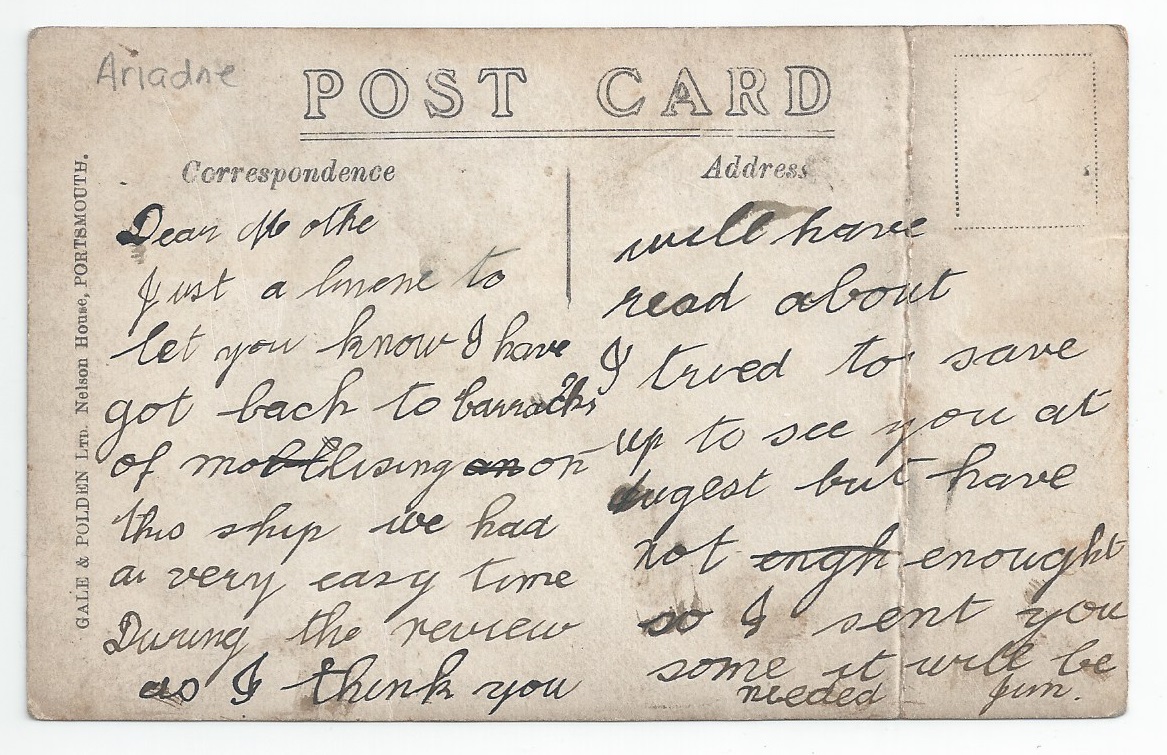 Ariadne
POST CARD
Correspondence
Address
GALE & POLDEN LTD. Nelson House, PORTSMOUTH.
Dear Mothe
Just a linene to
let you know I have
got back to barracks
of mobllising an on
this ship we had
a very easy time
During the review
as I think you
will have
read about
I tried to save
up to see you at
Augest but have
not engh enought
so I sent you
some it will be
needed Jim.